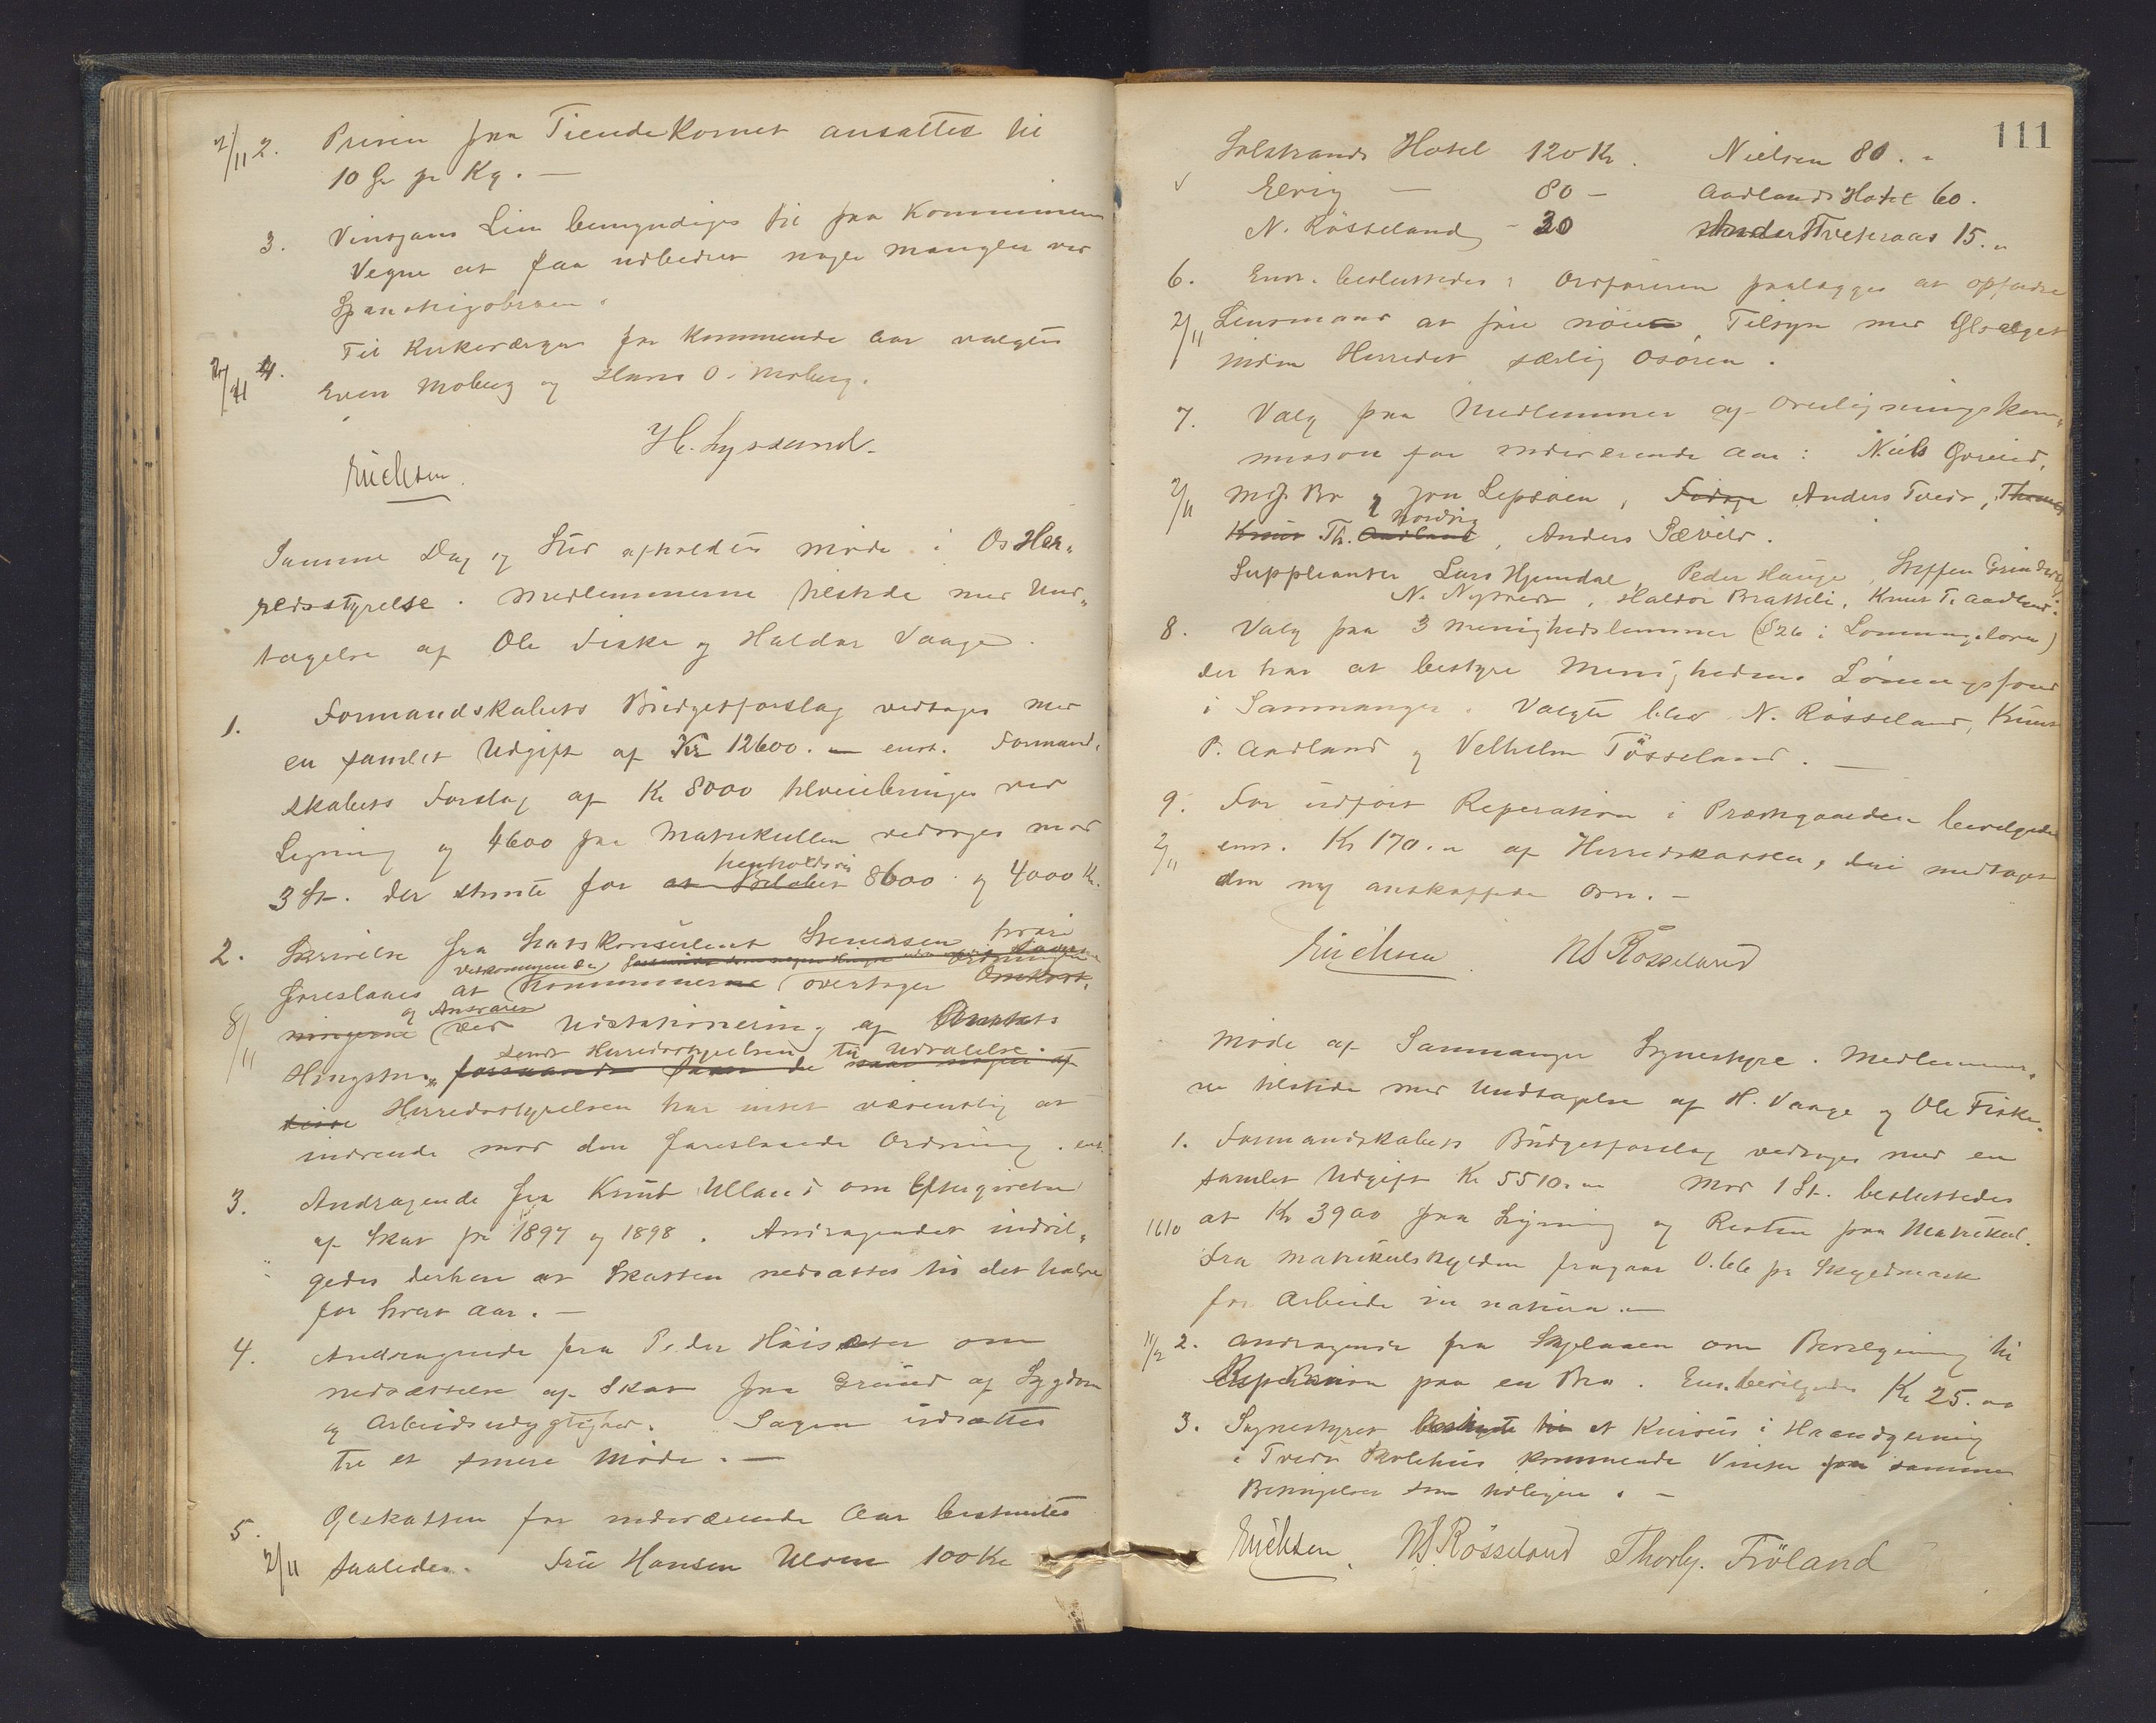 2/11 2. Prisen paa Tiendekornet ansattes til
10 Øre pr Kg. —
3. Vinsjans Lien bemyndiges til paa Kommunens
Vegne at faa udbedret nogle mangler ved
4. Til Kirkeværger for kommende Aar valgtes
Even Moberg og Hans O. Moberg.
H. Lyssand.
Erichsen.
Samme Dag og Sted afholdtes møde i Os Her„
redsstyrelse. Medlemmerne tilstede med Und„
tagelse af Ole Fiske og Haldor Vaage.
1. Formandskabets Budgetforslag vedtages med
en samlet Udgift af Kr 12600. — enst. Formand„
skabets Forslag af Kr 8000 tilveiebringes ved
Ligning og 4600 paa Matrikullen vedtages mod
henholdsvis
3 St. der stemte for at Beløbet 8600 og 4000 Kr.
2. Skrivelse fra Statskonsulent hvori
vedkommende
foreslaaes at Kommunerne overtager Omkost„
og Ansvaret
8/11 ningerne ved Udstationering af Amtets
sendt Herredsstyrelsen til Udtalelse.
Hingster,
disse Herredsstyrelsen har intet væsentlig at
indvende mod den foreslaaede Ordning. enst.
3. Andragende fra Knut Ulland om Eftergivelse
af Skat for 1897 og 1898. Andragendet indvil„
gedes derhen at Skatten nedsattes til det halve
for hvert Aar. —
4. Andragende fra Peder Høisæter om
nedsættelse af Skat paa Grund af Sygdom
og Arbeidsudygtighed. Sagen udsættes
til et senere Møde. —
5. Ølskatten for indeværende Aar bestemtes
2/11 saaledes. Fru Hansen Ulven 100 Kr
111
Solstrands Hotel 120 Kr. Nielsen 80. „
Elvig — 80 — Aadlands Hotel 60.
N. Rösseland — 30 Tveteraas 15. „
6. Enst. besluttedes: Ordføreren paalægges at opfordre
2/11 Lensmand at føre nøie Tilsyn med Ølsalget
inden Herredet særlig Osøren.
7. Valg paa Medlemmer af Overligningskom„
mission for indeværende Aar: Niels Gøvied,
2/11 Mons Bø og Jon Lepsøen, Anders Tveit, Thomas
Nordvig
Knut Th. Aadland, Anders Sævild.
Suppleanter Lars Hjemdal, Peder Hauge, Steffen Grindevig
N. Nytveit, Haldor Bratteli, Knut T. Aadland.
8. Valg paa 3 Menighedslemmer (§ 26 i Lønningsloven)
der har at bestyre Menighedens Lønningsfond
i Samnanger. Valgte blev N. Rösseland, Knut
P. Aadland og Velhelm Tösseland. —
9. For udført Reperation i Præstegaarden bevilgedes
2/11 enst. Kr 170. „ af Herredskassen, deri medtaget
den ny anskaffede Ovn. —
Erichsen. NS Rösseland
Møde af Samnanger Sognestyre. Medlemmer„
ne tilstede med Undtagelse af H. Vaage og Ole Fiske.
1. Formandskabets Budgetforslag vedtages med en
samlet Udgift Kr 5510. „ Mod 1 St. besluttedes
1610 at Kr 3900 paa Ligning og Resten paa Matrikul.
Fra Matrikulskylden fragaar 0.66 pr Skyldmark
for Arbeide in natura. —
11/2 2. Andragende fra om Bevilgning til
Reperation paa en Bro. Enst. bevilgedes Kr 25.00
3. Sognestyret et Kursus i Haandgjerning
i Tveit Skolehus kommende Vinter paa samme
Betingelser som tidligere. —
Erichsen. NS. Rösseland Thorbj. Fröland